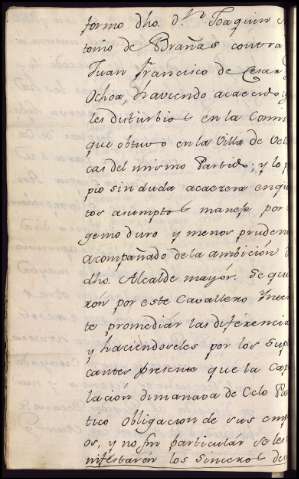 formo dho. dn. Joaquin
tomo de Brañas contra
Juan Francisco de Cesar
Ochoa, haviendo acaecido
les disturbios en la Comi
que obtuvo en la Villa de Vel
cas del mismo Partido; y lo
pio sin duda acaecera en qu
tos asumptos maneje, por
genio duro y menos pruden
acompañado de la ambicion
dho. Alcalde mayor. Se qui
ron por este Cavallero
te promediar las diferencia
y haciendoseles por los Sup
cantes presente que la Cap
lacion dimanada de Celo Pat
tico obligacion de sus emp
os, y no fin particular se le
nifestaron los sinceros de